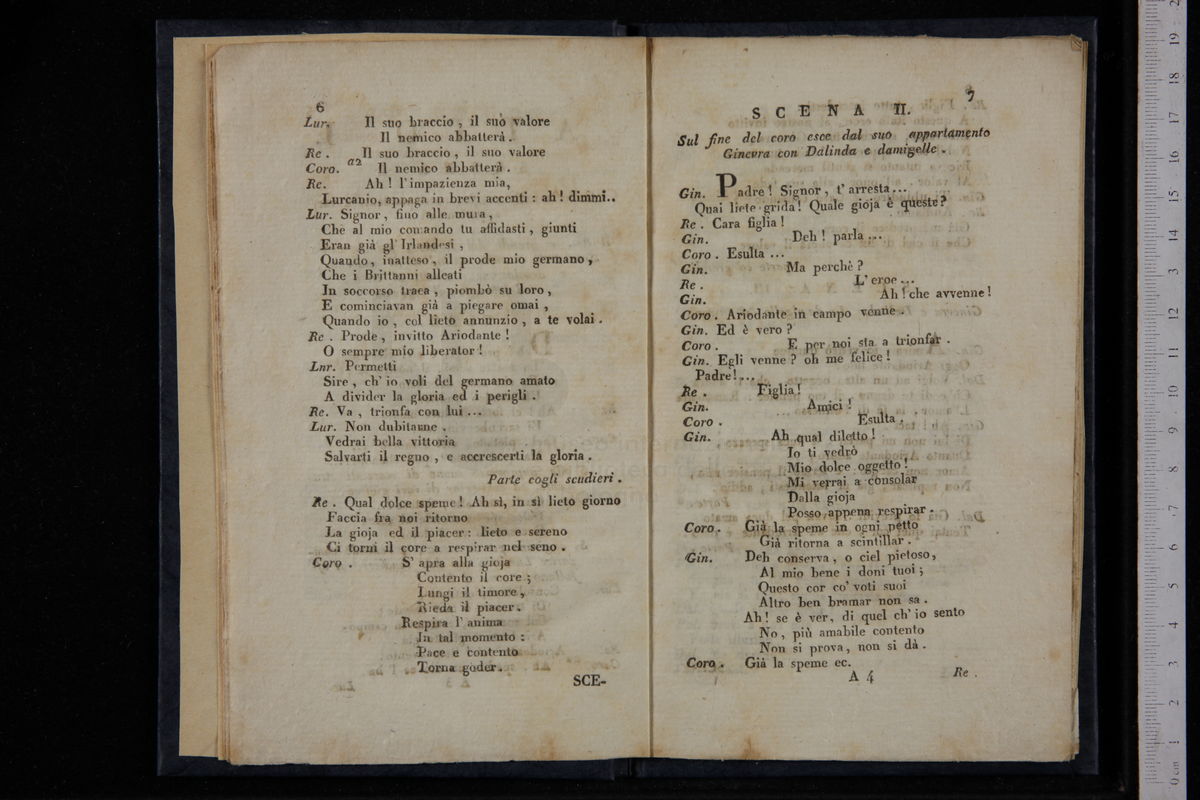 6
Lur. Il suo braccio , il suo valore
Il nemico abbatterà .
Re . Il suo braccio , il suo valore
Coro. a2 Il nemico abbatterà .
Re. Ah ! l'impazienza mia,
Lurcanio, appaga in brevi accenti : ah ! dimmi..
Lur. Signor, fino alle mura,
Che al mio comando tu affidasti, giunti
Eran già gl' Irlandesi ,
Quando, inatteso, il prode mio germano,
Che i Brittanni alleati
In soccorso traea , piombò su loro,
E cominciavan già a piegare omai ,
Quando io , col lieto annunzio , a te volai .
Re . Prode , invitto Ariodante !
O sempre mio liberator !
Lnr. Permetti
Sire, ch' io voli del germano amato
A divider la gloria ed i perigli .
Re. Va , trionfa con lui ...
Lur. Non dubitarne .
Vedrai bella vittoria
Salvarti il regno , e accrescerti la gloria .
Parte cogli scudieri .
Re . Qual dolce speme ! Ah sì, in sì lieto giorno
Faccia fra noi ritorno
La gioja ed il piacer : lieto e sereno
Ci torni il core a respirar nel seno .
Coro . S' apra alla gioja
Contento il core ;
Lungi il timore,
Rieda il piacer.
Respira l' anima
In tal momento :
Pace e contento
Torna goder.
SCE-
7
SCENA II.
Sul fine del coro esce dal suo appartamento
Ginevra con Dalinda e damigelle .
Gin. Padre ! Signor , t' arresta ...
Quai liete grida ! Quale gioja è queste?
Re . Cara figlia !
Gin. Deh ! parla ...
Coro . Esulta ...
Gin. Ma perchè ?
Re . L' eroe ...
Gin. Ah ! che avvenne !
Coro . Ariodante in campo venne .
Gin. Ed è vero ?
Coro . E per noi sta a trionfar .
Gin. Egli venne ? oh me felice !
Padre !...
Re . Figlia !
Gin. Amici !
Coro . Esulta .
Gin. Ah qual diletto !
Io ti vedrò
Mio dolce oggetto !
Mi verrai a consolar
Dalla gioja
Posso appena respirar .
Coro . Già la speme in ogni petto
Già ritorna a scintillar .
Gin. Deh conserva , o ciel pietoso,
Al mio bene i doni tuoi ;
Questo cor co' voti suoi
Altro ben bramar non sa .
Ah ! se è ver, di quel ch' io sento
No , più amabile contento
Non si prova, non si dà .
Coro . Già la speme ec.
A 4
Re .